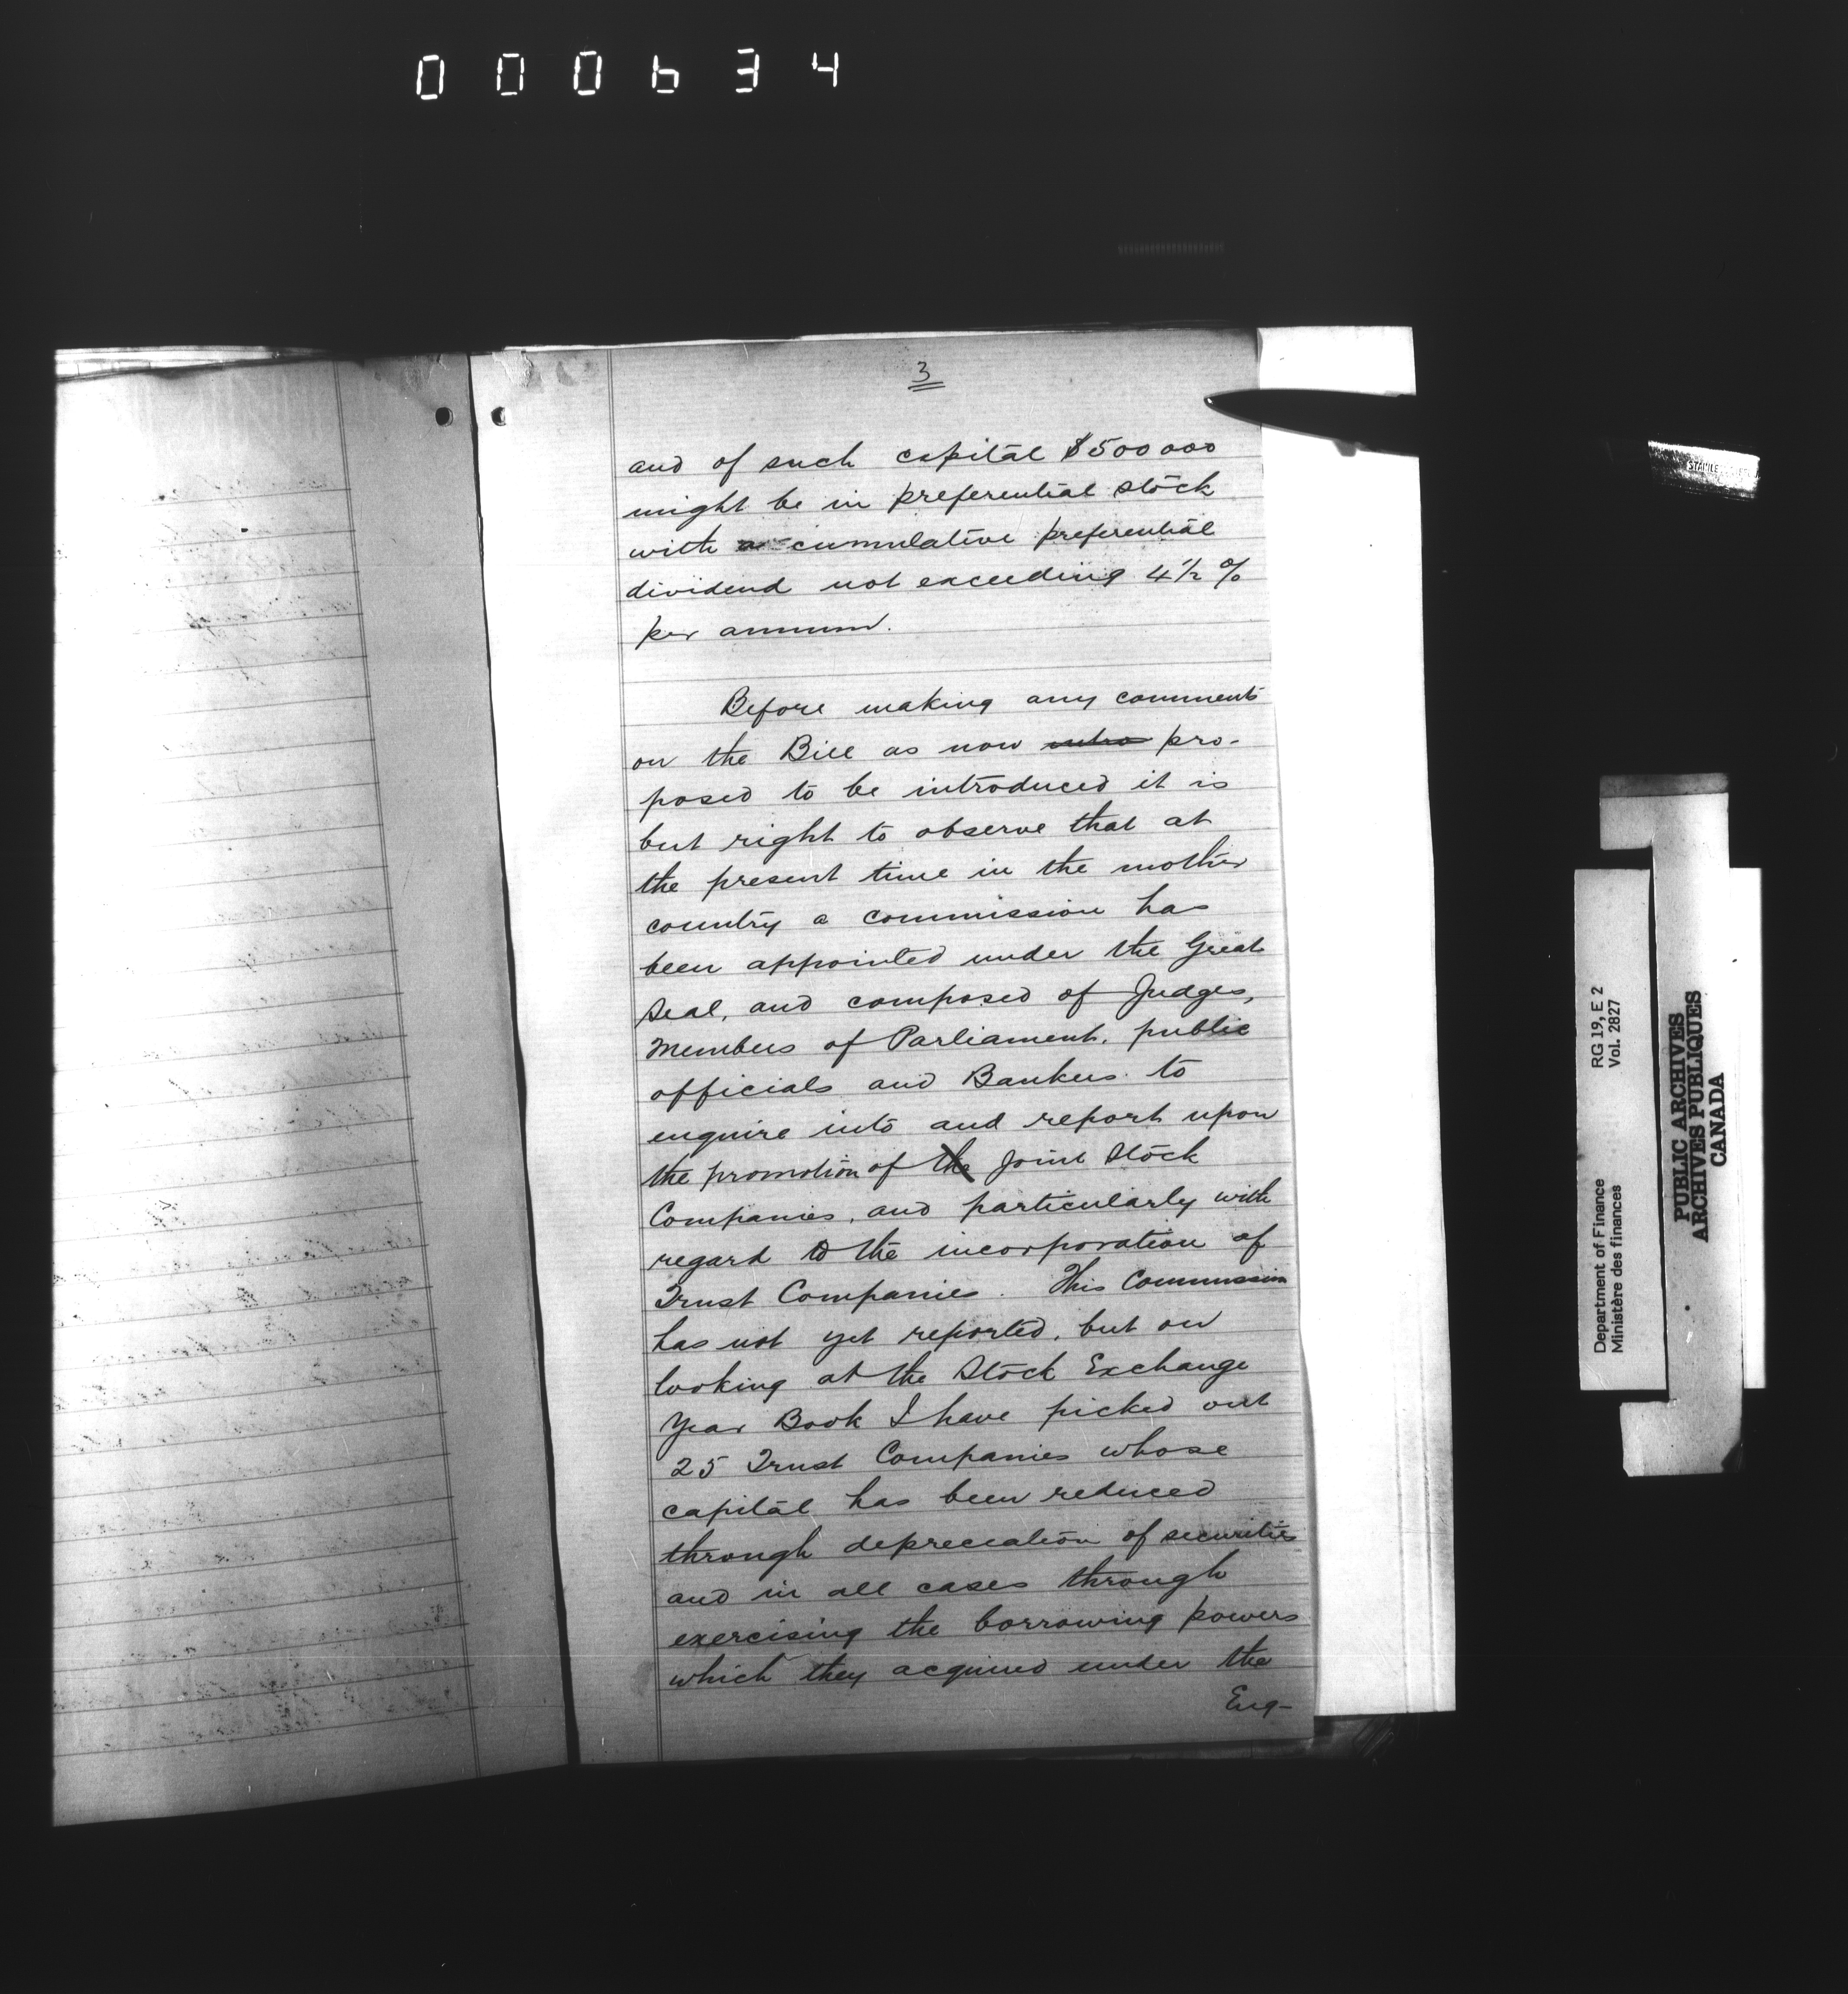 000634
3
and of such capital $500000
might be in preferential stock
with a cumulative preferential
dividend not exceeding 4 1/2 %
per annum.
Before making any comments
on the Bill as now intro pro-
posed to be introduced it is
but right to observe that at
the present time in the mother
country a commission has
been appointed under the Great
Seal, and composed of Judges,
Members of Parliament, public
officials and Bankers to
enquire into and report upon
the promotion of the Joint Stock
Companies, and particularly with
regard to the incorporation of
Trust Companies. This Commission
has not yet reported, but on
looking at the Stock Exchange
Year Book I have picked out
25 Trust Companies whose
capital has been reduced
through depreciation of securities
and in all cases through
exercising the borrowing powers
which they acquired under the
Eng-
Department of Finance RG 19, E 2
Ministère des finances Vol. 2827
PUBLIC ARCHIVES
ARCHIVES PUBLIQUES
CANADA